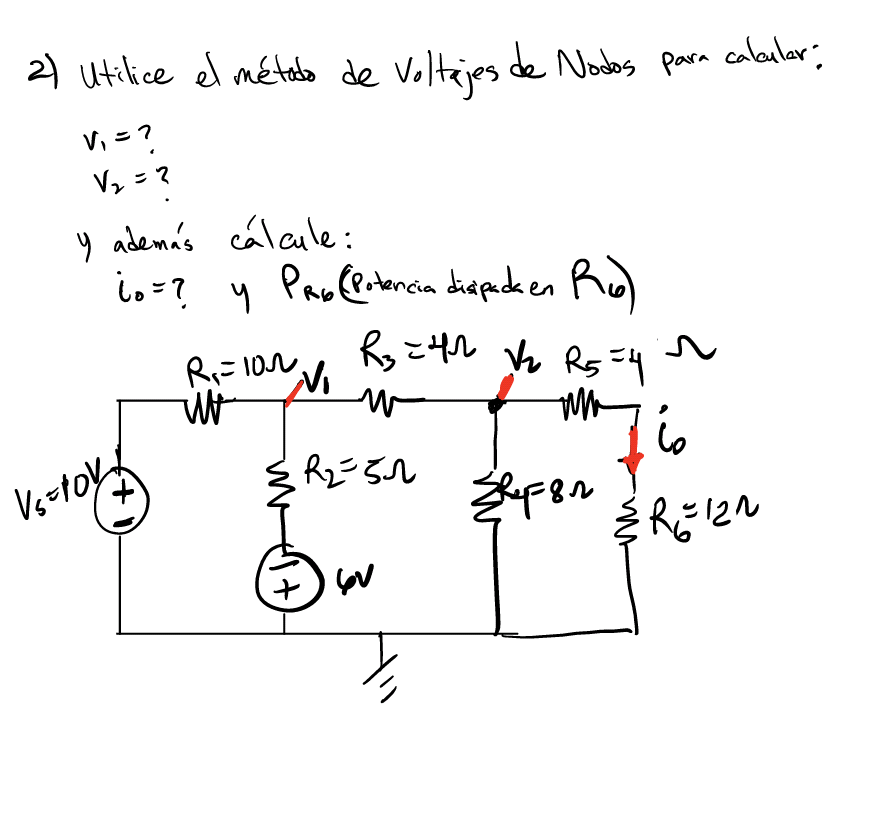 2) Utilice el método de Voltajes de Nodos para calcular:
V₁ = ?
V₂ = ?
y además cálcule:
i₀ = ? y P_R6 (Potencia disipada en R6)
R₁=10Ω V₁ R₃=4Ω V₂ R5=4 Ω
i₀
Vs=10V + − R₂=5Ω R4=8Ω R6=12Ω
− + 6V